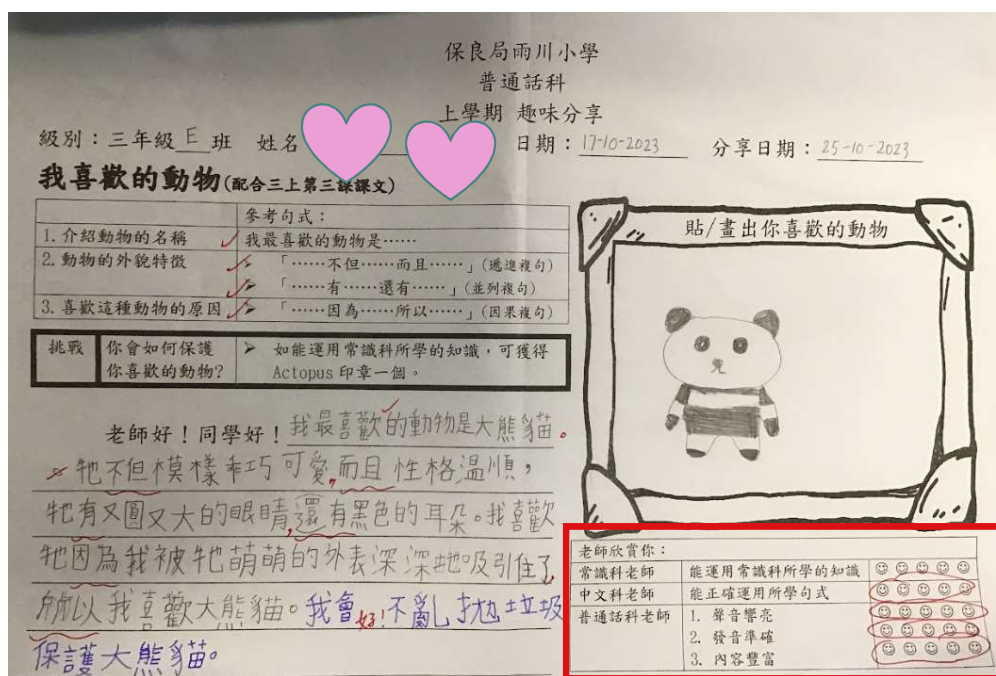 保良局雨川小學
普通話科
上學期 趣味分享
級別：三年級 E 班 姓名 日期：17-10-2023 分享日期：25-10-2023
我喜歡的動物(配合三上第三課課文)
參考句式：
1. 介紹動物的名稱 我最喜歡的動物是……
2. 動物的外貌特徵 ➢ 「……不但……而且……」(遞進複句)
➢ 「……有……還有……」(並列複句)
3. 喜歡這種動物的原因 ➢ 「……因為……所以……」(因果複句)
挑戰 你會如何保護你喜歡的動物? ➢ 如能運用常識科所學的知識，可獲得
Actopus 印章一個。
老師好！同學好！我最喜歡的動物是大熊貓。
牠不但模樣乖巧可愛，而且性格溫順，
牠有又圓又大的眼睛，還有黑色的耳朵。我喜歡
牠因為我被牠萌萌的外表深深地吸引住了，
所以我喜歡大熊貓。我會好!不亂拋垃圾
保護大熊貓。
貼/畫出你喜歡的動物
老師欣賞你：
常識科老師 能運用常識科所學的知識
中文科老師 能正確運用所學句式
普通話科老師 1. 聲音響亮
2. 發音準確
3. 內容豐富